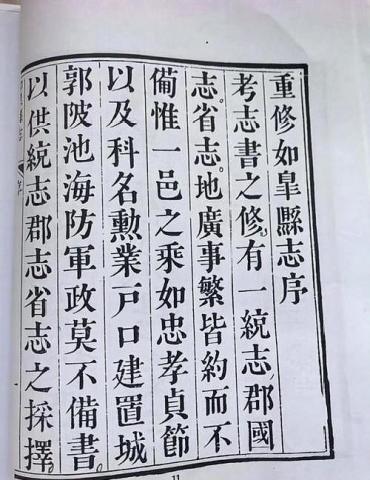 重修如臯縣志序
考志書之修有一統志郡國
志省志地廣事繁皆約而不
備惟一邑之乘如忠孝貞節
以及科名勲業戸口建置城
郭陂池海防軍政莫不備書
以供統志郡志省志之採擇
11